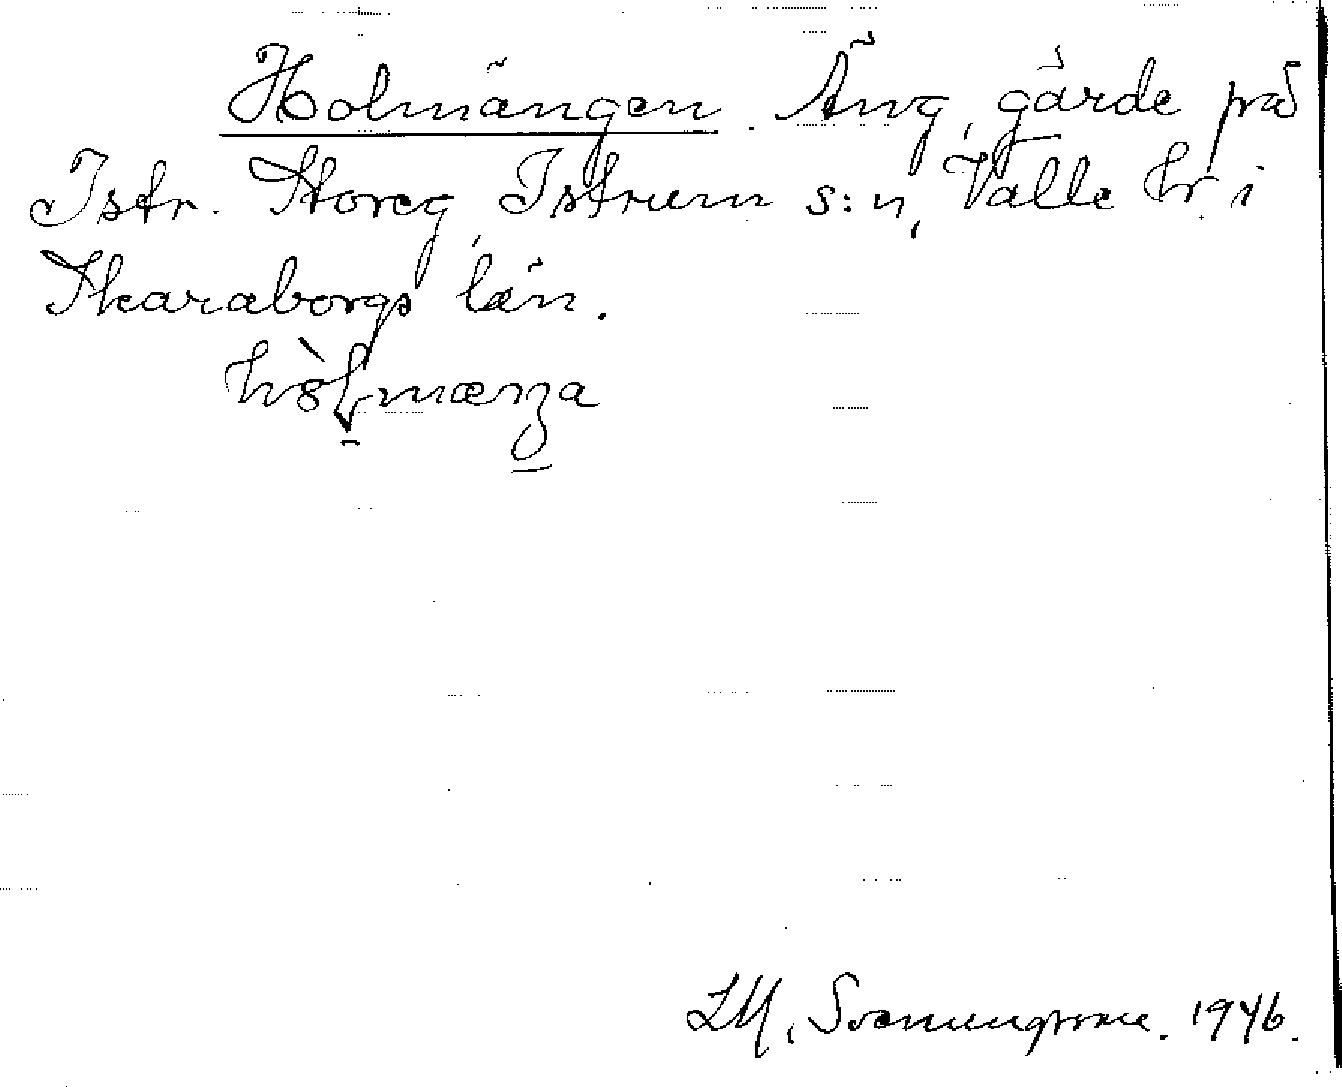 Holmängen. Äng, gärde på
Istr. Storeg, Istrum s:n, Valle hr. i
Skaraborgs län.
LM, Svenungsson. 1946.